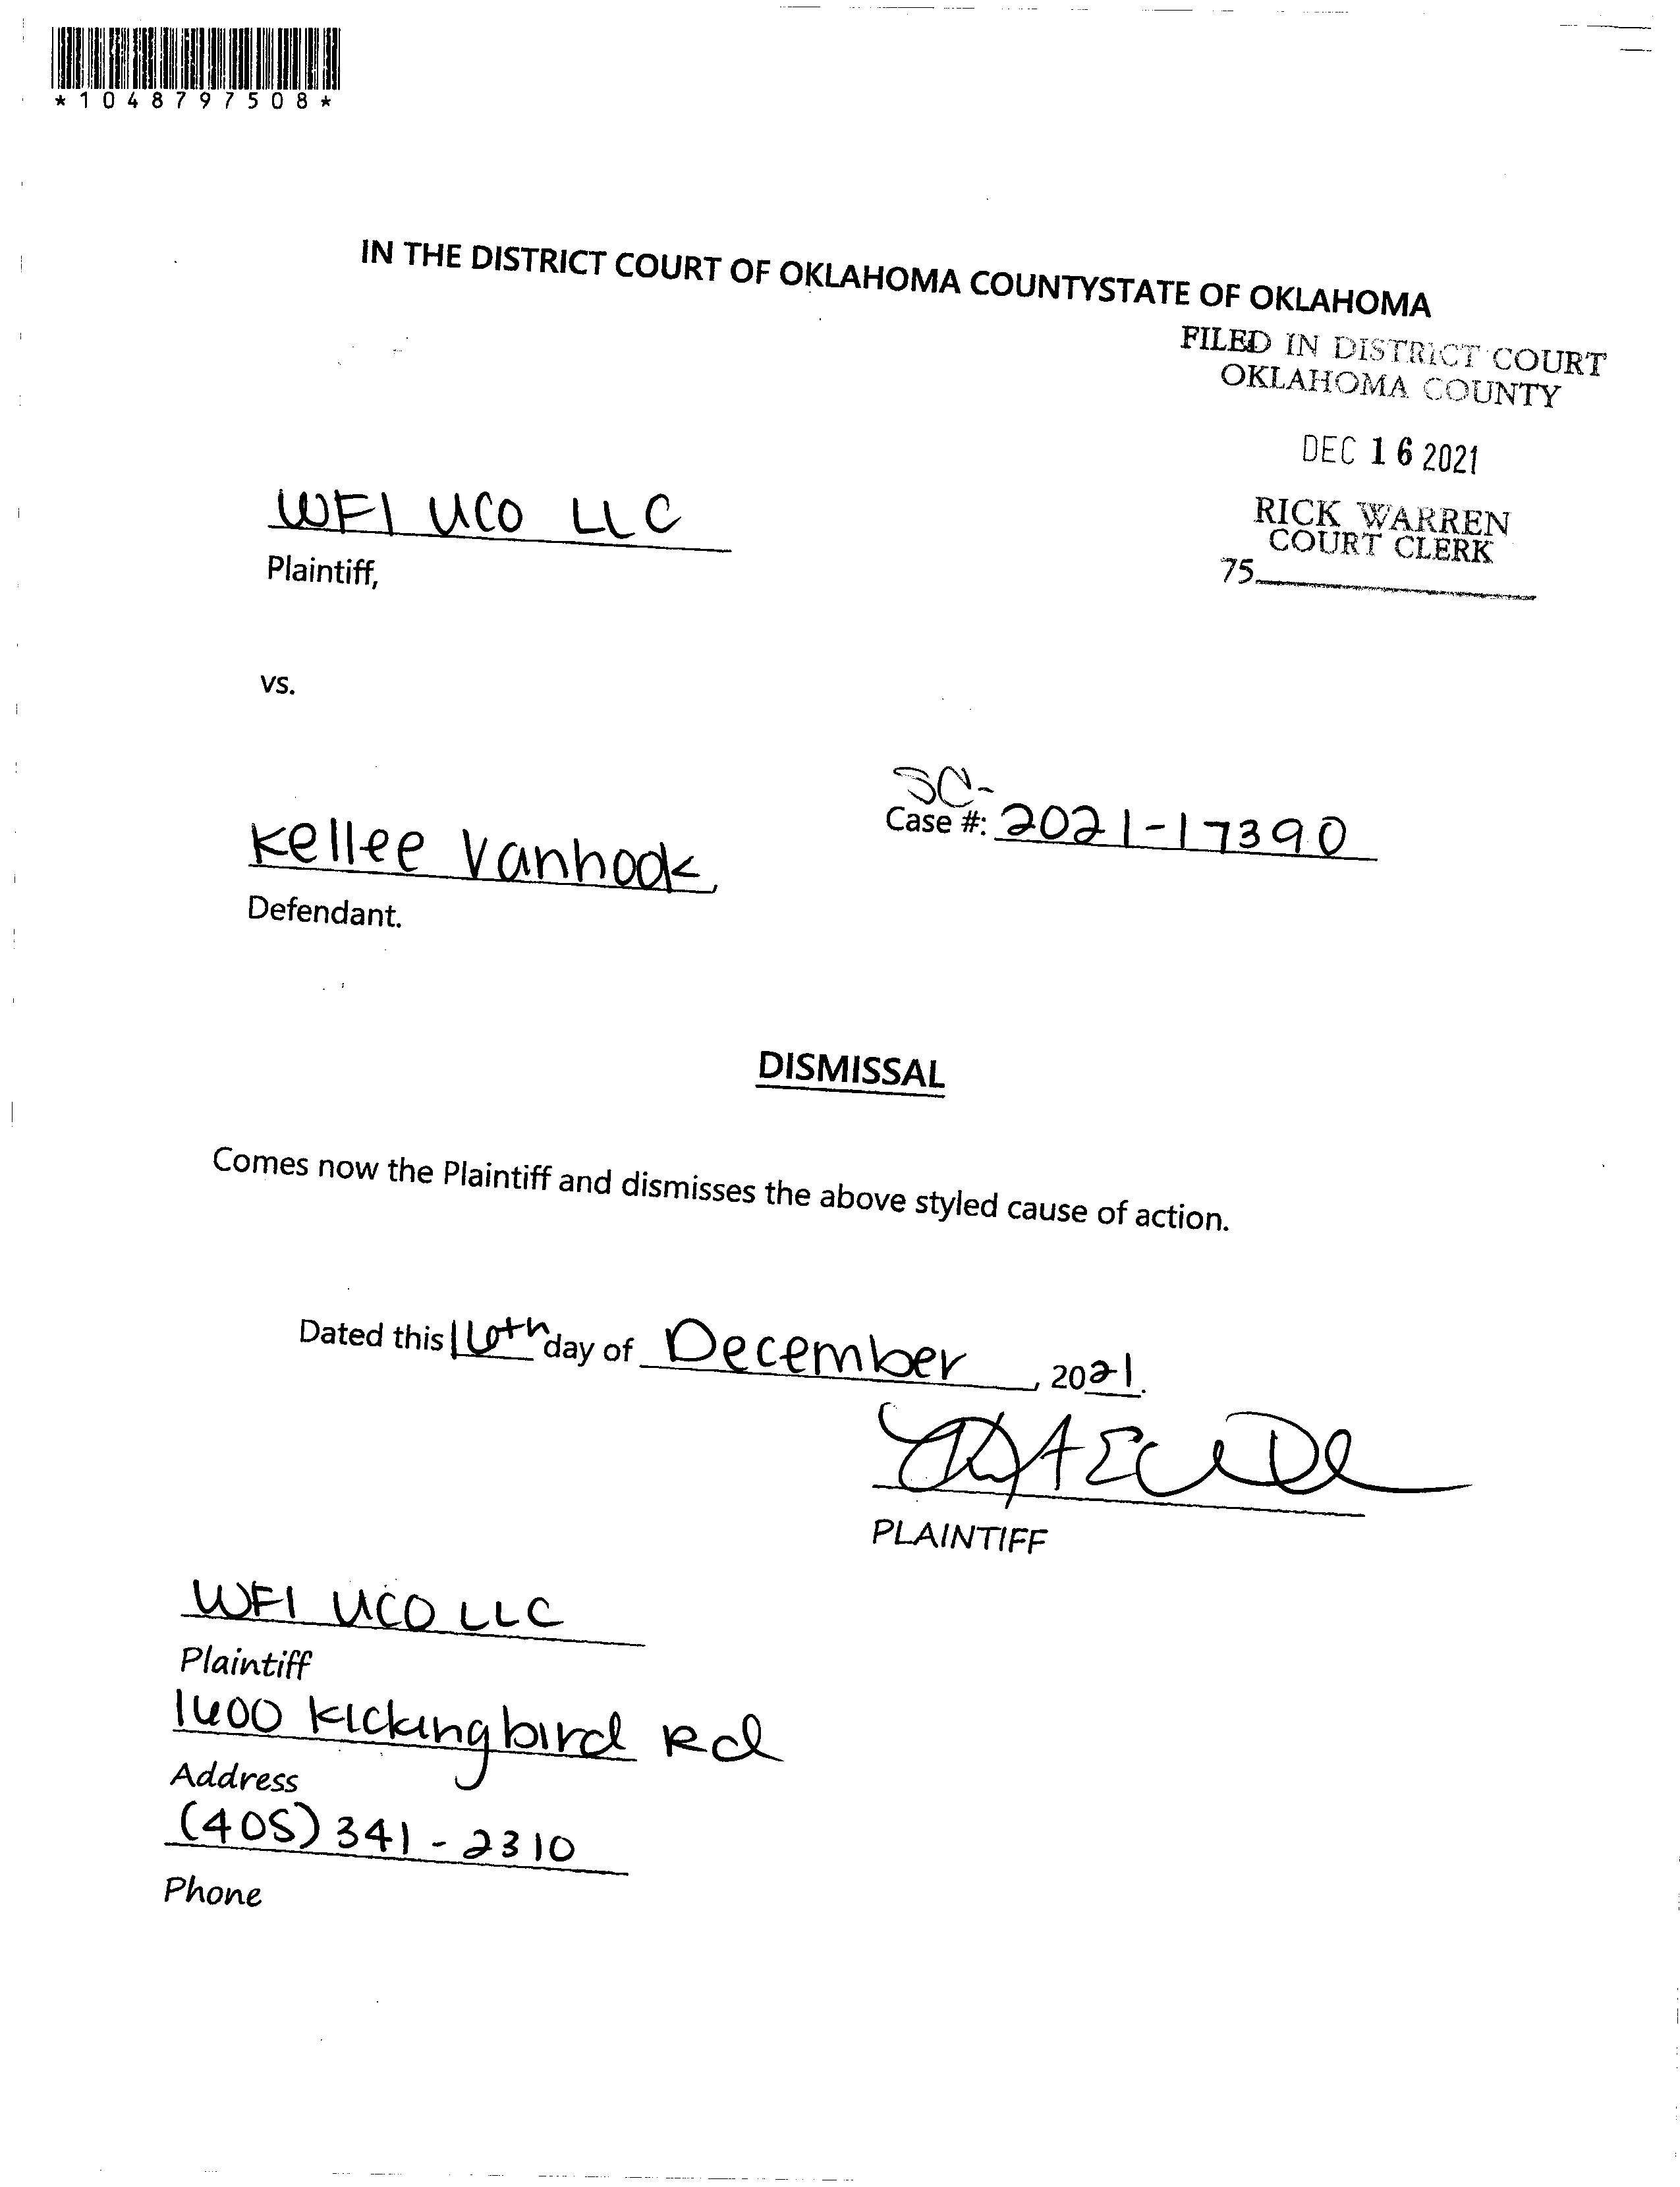 *1048797508*
IN THE DISTRICT COURT OF OKLAHOMA COUNTYSTATE OF OKLAHOMA
FILED IN DISTRICT COURT
OKLAHOMA COUNTY
DEC 16 2021
RICK WARREN
COURT CLERK
75
WFI UCO LLC
Plaintiff,
vs.
SC-
Case #: 2021-17390
Kellee Vanhook,
Defendant.
DISMISSAL
Comes now the Plaintiff and dismisses the above styled cause of action.
Dated this 16th day of December, 2021.
PLAINTIFF
WFI UCO LLC
Plaintiff
1600 Kickingbird Rd
Address
(405) 341-2310
Phone